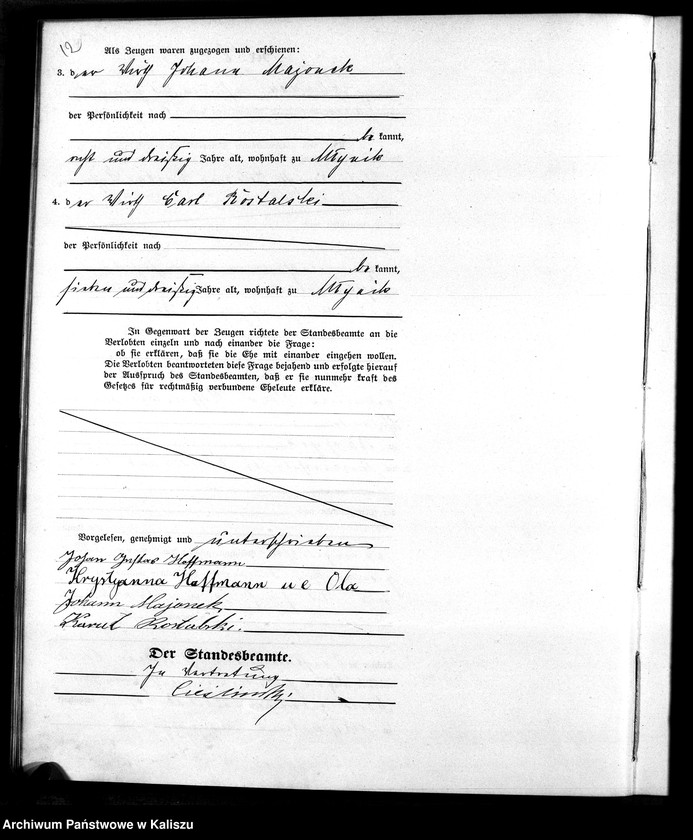 12
Als Zeugen waren zugezogen und erschienen:
3. der Wirth Johann Majonek
der Persönlichkeit nach
be kannt,
acht und dreißig Jahre alt, wohnhaft zu Mlynik
4. der Wirth Carl Rostalski
der Persönlichkeit nach
be kannt,
sieben und dreißig Jahre alt, wohnhaft zu Mlynik
In Gegenwart der Zeugen richtete der Standesbeamte an die
Verlobten einzeln und nach einander die Frage:
ob sie erklären, daß sie die Ehe mit einander eingehen wollen.
Die Verlobten beantworteten diese Frage bejahend und erfolgte hierauf
der Ausspruch des Standesbeamten, daß er sie nunmehr kraft des
Gesetzes für rechtmäßig verbundene Eheleute erkläre.
Vorgelesen, genehmigt und unterschrieben
Johan Gustav Hoffmann
Krystyanna Haffmann
Johann Majonek
Karul Rostalski.
Der Standesbeamte.
In Vertretung
Archiwum Państwowe w Kaliszu